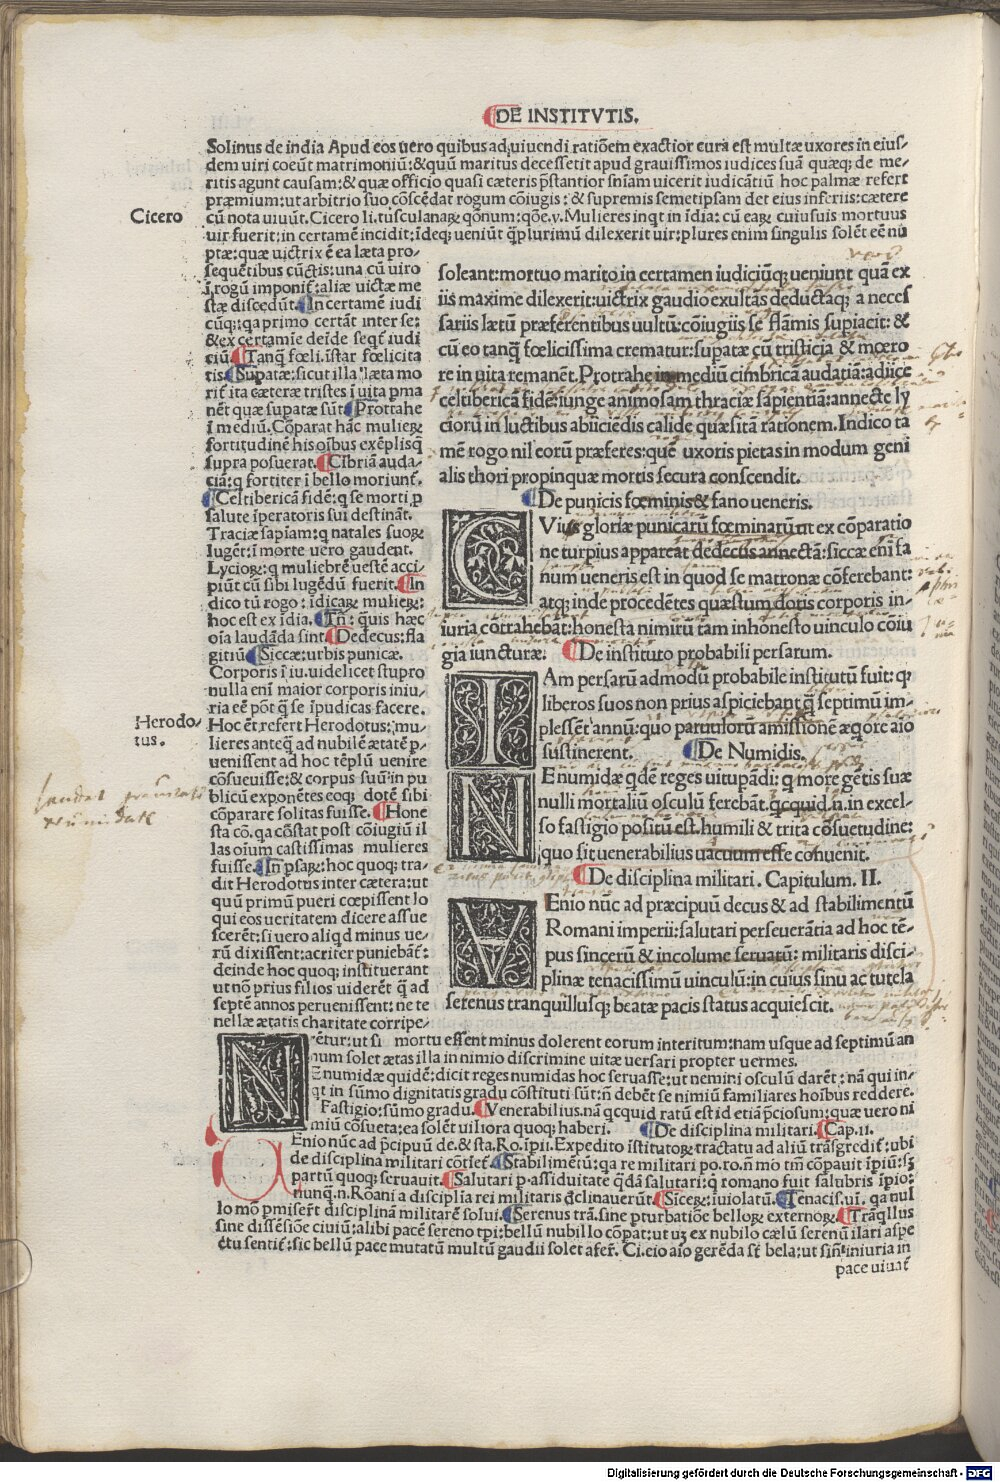 DE INSTITVTIS.
Solinus de india Apud eos uero quibus ad uiuendi ratiōem exactior cura est multæ uxores in eius-
dem uiri coeūt matrimoniū: & quū maritus decesserit apud grauissimos iudices suā quæq; de me-
ritis agunt causam: & quæ officio quasi cæteris p̄stantior sn̄iam uicerit iudicātiū hoc palmæ refert
præmium: ut arbitrio suo cōscēdat rogum cōiugis: & supremis semetipsam det eius inferiis: cætere
Cicero
cū nota uiuūt. Cicero li. tusculanaꝝ qōnum: qōe. v. Mulieres inqt in īdia: cū eaꝝ cuiusuis mortuus
uir fuerit: in certamē incidīt: īdeq; ueniūt q̄plurimū dilexerit uir: plures enim singulis solēt eē nu
ptæ: quæ uictrix ē ea læta pro-
sequētibus cūctis: una cū uiro
ī rogū imponit̄: aliæ uictæ me
stæ discedūt. In certamē iudi
cūq;: qa primo certāt inter se:
& ex certamīe deīde seqt̄ iudi
ciū. Tanq̄ fœli. īstar fœlicita
tis. Supatæ: sicut illa læta mo
rit̄ ita cæteræ tristes ī uita pma
nēt quæ supatæ sūt. Prottahe
ī mediū. Cōparat hāc mulieꝝ
fortitudinē his oībus exēplisq;
supra posuerat. Cībriā auda-
ciā: q fortiter ī bello moriunt̄.
Celtibericā fidē: q se morti p
salute īperatoris sui destināt.
Traciæ sapiam: q natales suoꝝ
lugēt: ī morte uero gaudent.
Lycioꝝ: q muliebrē uestē acci-
piūt cū sibi lugēdū fuerit. In
dico tū rogo: īdicaꝝ mulieꝝ:
hoc est ex īdia. Tn̄: quis hæc
oīa laudāda sint. Dedecus: fla
gitiū. Siccæ: urbis punicæ.
Corporis ī iu. uidelicet stupro
nulla enī maior corporis iniu-
ria eē pōt q̄ se īpudicas facere.
Herodo-
tus.
Hoc ēt refert Herodotus: mu-
lieres anteq̄ ad nubilē ætatē p-
uenissent ad hoc tēplū uenire
cōsueuisse: & corpus suū in pu
blicū exponētes eoq; dotē sibi
cōparare solitas fuisse. Hone
sta cō. qa cōstat post cōiugiū il
las oīum castissimas mulieres
fuisse. In psaꝝ: hoc quoq; tra-
dit Herodotus inter cætera: ut
quū primū pueri cœpissent lo
qui eos ueritatem dicere assue
scerēt: si uero aliqd minus ue-
rū dixissent: acriter puniebāt̄:
deinde hoc quoq; instituerant
ut nō prius filios uiderēt q̄ ad
septē annos peruenissent: ne te
nellæ ætatis charitate corripe-
soleant: mortuo marito in certamen iudiciūq; ueniunt quā ex
iis maxime dilexerit: uictrix gaudio exultās deductaq; a neces
sariis lætū præferentibus uultū: cōiugiis se flāmis supiacit: &
cū eo tanq̄ fœlicissima crematur: supatæ cū tristicia & mœro
re in uita remanēt. Protrahe in mediū cimbricā audatiā: adiice
celtibericā fidē: iunge animosam thraciæ sapientiā: annecte ly
ciorū in luctibus abiiciēdis calide quæsitā rationem. Indico ta
mē rogo nil eorū præferes: quē uxoris pietas in modum geni
alis thori propinquæ mortis secura conscendit.
De punicis fœminis & fano ueneris.
CVius gloriæ punicarū fœminarū ut ex cōparatio
ne turpius appareat dedecus annectā: siccæ enī fa
num ueneris est in quod se matronæ cōferebant:
atq; inde procedētes quæstum dotis corporis in-
iuria cōtrahebāt: honesta nimirū tam inhonesto uinculo cōiu
gia iuncturæ. De instituto probabili persarum.
IAm persarū admodū probabile institutū fuit: q;
liberos suos non prius aspiciebant q̄ septimū im-
plessēt annū: quo paruulorū amissionē æqore aīo
sustinerent. De Numidis.
NE numidæ qdē reges uitupādi: q more gētis suæ
nulli mortaliū osculū ferebāt. qcquid .n. in excel-
so fastigio positū est. humili & trita cōsuetudine:
quo sit uenerabilius uacuum esse conuenit.
De disciplina militari. Capitulum. II.
VEnio nūc ad præcipuū decus & ad stabilimentū
Romani imperii: salutari perseuerātia ad hoc tē-
pus sincerū & incolume seruatū: militaris disci-
plinæ tenacissimū uinculū: in cuius sinu ac tutela
serenus tranquillusq; beatæ pacis status acquiescit.
rētur: ut si mortu essent minus dolerent eorum interitum: nam usque ad septimū an
num solet ætas illa in nimio discrimine uitæ uersari propter uermes.
NE numidæ quidē: dicit reges numidas hoc seruasse: ut nemini osculū darēt: nā qui in-
qt in sūmo dignitatis gradu cōstituti sūt: n̄ debēt se nimiū familiares hoībus reddere.
Fastigio: sūmo gradu. Venerabilius. nā qcquid ratū est id etiā p̄ciosum: quæ uero ni
miū cōsueta; ea solēt uiliora quoq; haberi. De disciplina militari. Cap. II.
VEnio nūc ad p̄cipuū de. & sta. Ro. īpii. Expedito īstitutoꝝ tractatu ad aliū trāsgredit̄: ubi
de disciplina militari cōtīet̄. Stabilimētū: qa re militari po. ro. n̄ mō tm̄ cōpauit īpiū: sꝫ
partū quoq; seruauit. Salutari p. assiduitate q̄dā salutari: q romano fuit salubris īpio:
nunq̄ .n. Rōani a disciplīa rei militaris declinauerūt. Siceꝝ: īuiolatū. Tenacis. ui. qa nul
lo mō pmiserūt disciplinā militarē solui. Serenus trā. sine pturbatiōe belloꝝ externoꝝ. Trāqllus
sine dissēsiōe ciuiū: alibi pacē sereno tpi: bellū nubillo cōpat: ut uꝫ ex nubilo cælū serenū ilari aspe
ctu sentit̄: sic bellū pace mutatū multū gaudii solet afer̄. Ci. eio aīo gerēda sūt bela: ut sin̄ iniuria in
pace uiuat̄
Digitalisierung gefördert durch die Deutsche Forschungsgemeinschaft - DFG